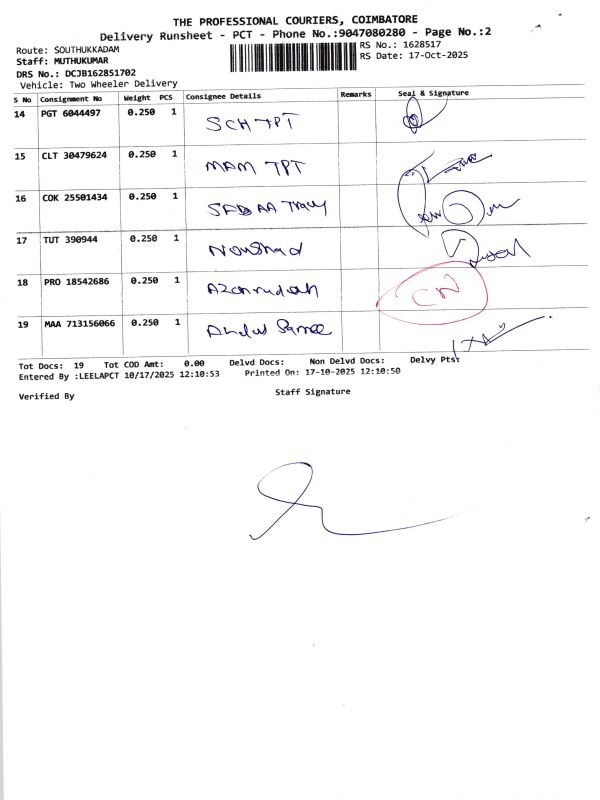 THE PROFESSIONAL COURIERS, COIMBATORE
Delivery Runsheet - PCT - Phone No.:9047080280 - Page No.:2
Route: SOUTHUKKADAM
RS No.: 1628517
Staff: MUTHUKUMAR
RS Date: 17-Oct-2025
DRS No.: DCJB162851702
Vehicle: Two Wheeler Delivery
S No Consignment No Weight PCS Consignee Details Remarks Seal & Signature
14 PGT 6044497 0.250 1 SCH TPT
15 CLT 30479624 0.250 1 MAM TPT
16 COK 25501434 0.250 1
17 TUT 390944 0.250 1 Noushad
18 PRO 18542686 0.250 1 CN
19 MAA 713156066 0.250 1
Tot Docs: 19 Tot COD Amt: 0.00 Delvd Docs: Non Delvd Docs: Delvy Pts:
Entered By :LEELAPCT 10/17/2025 12:10:53 Printed On: 17-10-2025 12:10:50
Verified By Staff Signature